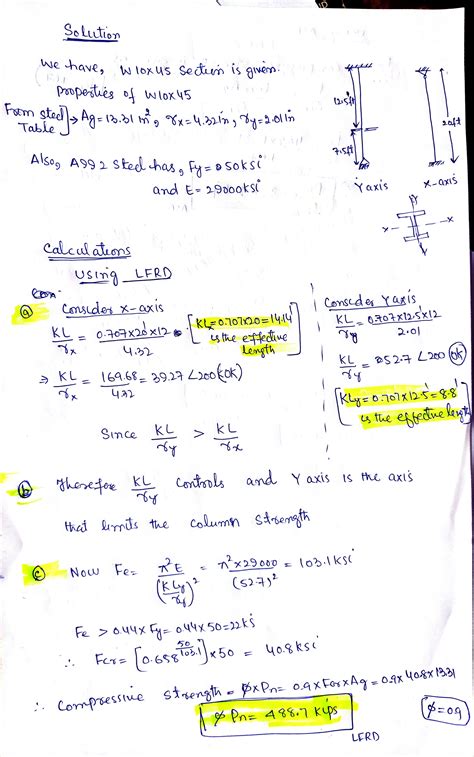 Solution
We have, W10x45 section is given.
Properties of W10x45
From steel Table } → Ag = 13.31 in², rx = 4.32in, ry = 2.01in
Also, A992 steel has, Fy = 50ksi
and E = 29000ksi
12.5ft
7.5ft
20ft
Y axis
x-axis
Y
x
x
Calculations
Using LFRD
ⓐ Consider x-axis
KL/rx = 0.707x20x12/4.32
[KLx = 0.707x20 = 14.14' is the effective length]
⇒ KL/rx = 169.68/4.32 = 39.27 < 200 (OK)
Consider Y axis
KL/ry = 0.707x12.5x12/2.01
KL/ry = 52.7 < 200 (OK)
[KLy = 0.707x12.5' = 8.8' is the effective length]
Since KL/ry > KL/rx
ⓑ Therefore KL/ry Controls and Y axis is the axis
that limits the column strength
ⓒ Now Fe = π²E/(KLy/ry)² = π²x29000/(52.7)² = 103.1ksi
Fe > 0.44xFy = 0.44x50 = 22ks
∴ Fcr = [0.658^(50/103.1)]x50 = 40.8ksi
∴ Compressive strength = ϕxPn = 0.9xFcrxAg = 0.9x40.8x13.31
ϕPn = 488.7 kips
ϕ=0.9
LFRD